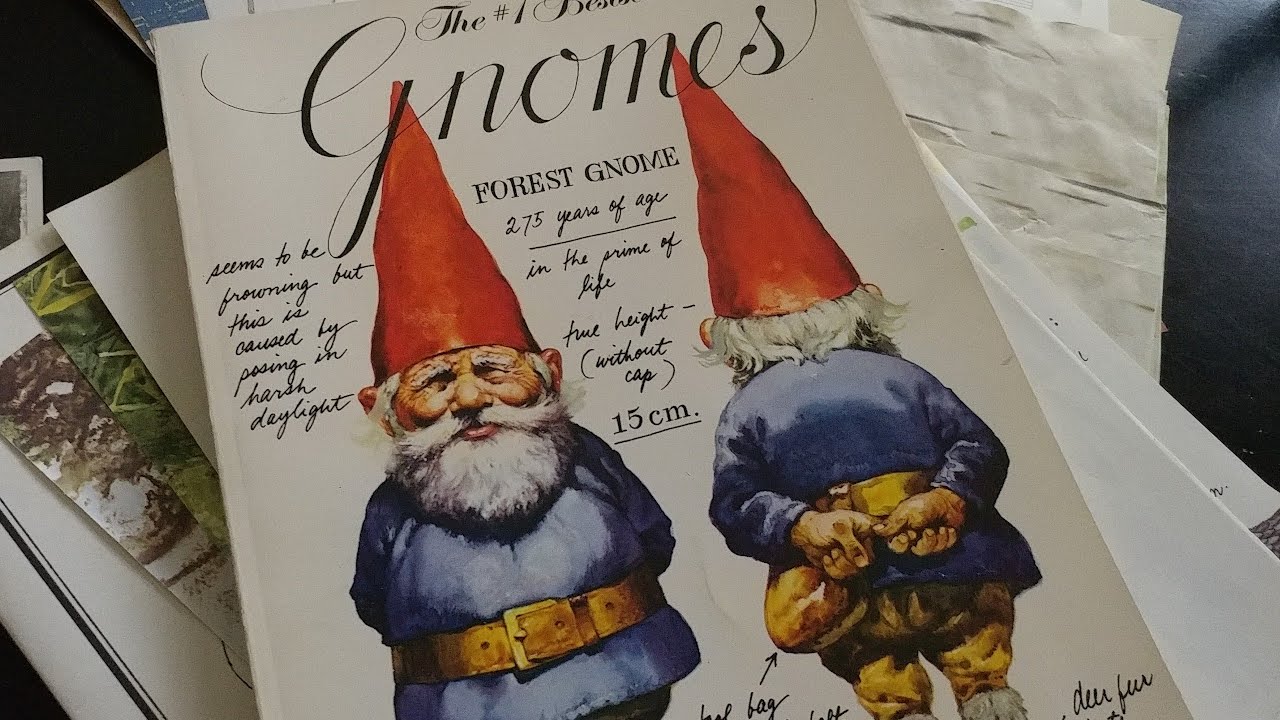 The #1
Gnomes
FOREST GNOME
275 years of age
in the prime of
life
true height –
(without
cap)
15 cm.
seems to be
frowning but
this is
caused by
posing in
harsh
daylight
bag
deer fur
n.